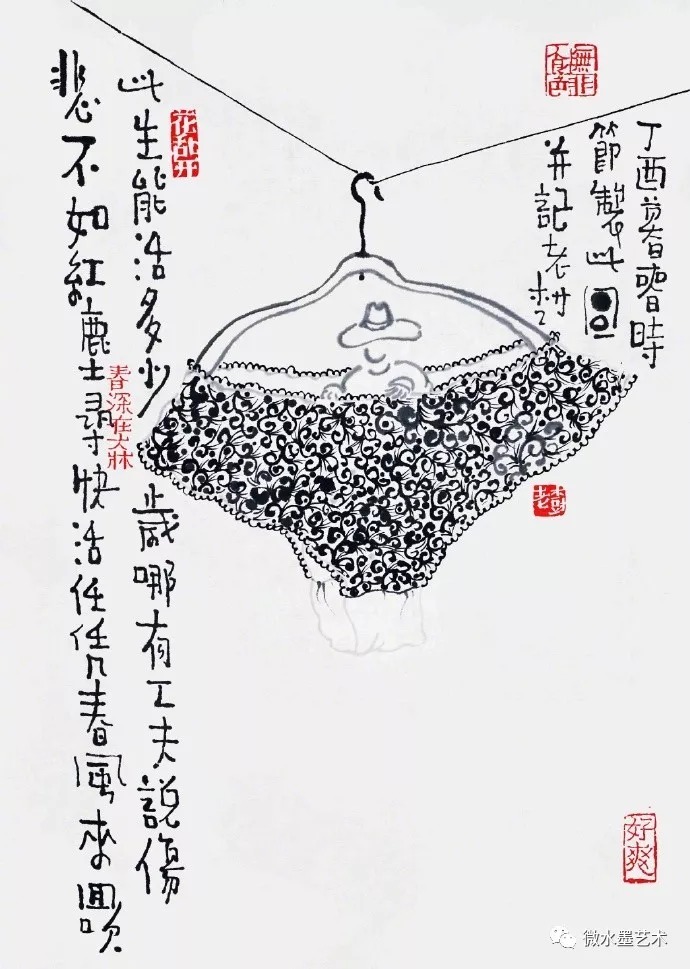 丁酉暮春時
節製此圖
并記老樹
無非
此生能活多少歲哪有工夫說傷
悲不如紅塵尋快活任凭春風來回吹
花乱开
春深在大
老樹
好爽
微水墨艺术